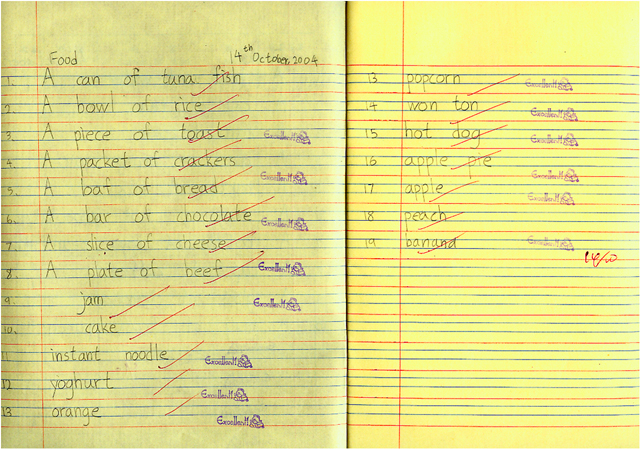 Food 14th October, 2004
1. A can of tuna fish
2. A bowl of rice
3. A piece of toast Excellent!
4. A packet of crackers
5. A loaf of bread Excellent!
6. A bar of chocolate Excellent!
7. A slice of cheese
8. A plate of beef Excellent!
9. jam Excellent!
10. cake
11 instant noodle Excellent!
12 yoghurt Excellent!
13. orange Excellent!
13 popcorn Excellent!
14 won ton Excellent!
15 hot dog Excellent!
16 apple pie Excellent!
17 apple Excellent!
18 peach
19 banana Excellent!